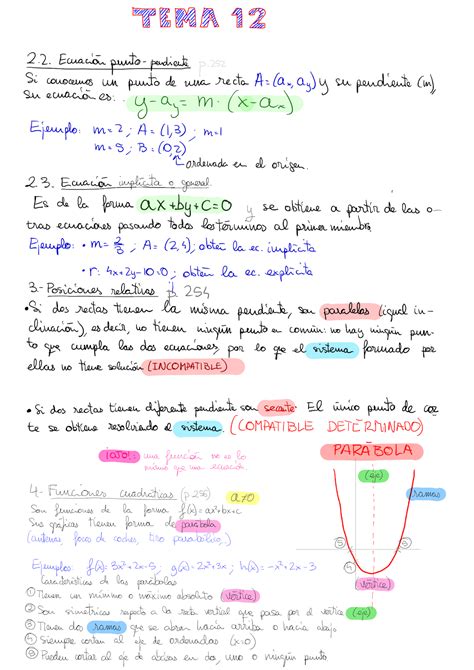 TEMA 12
2.2. Ecuación punto-pendiente p.252
Si conocemos un punto de una recta A=(ax,ay) y su pendiente (m),
su ecuación es: y-ay = m·(x-ax)
Ejemplo: m=2; A=(1,3); m=1
m=5; B=(0,2)
Ordenada en el origen.
2.3. Ecuación implícita o general.
Es de la forma ax+by+c=0 y se obtiene a partir de las o-
tras ecuaciones pasando todos los términos al primer miembro
Ejemplo: • m=2/3; A=(2,4); obtén la ec. implícita
• r: 4x+2y-10=0; obtén la ec. explícita
3.- Posiciones relativas p. 254
• Si dos rectas tienen la misma pendiente, son paralelas (igual in-
clinación), es decir, no tienen ningún punto en común: no hay ningún pun-
to que cumpla las dos ecuaciones, por lo que el sistema formado por
ellas no tiene solución (INCOMPATIBLE)
• Si dos rectas tienen diferente pendiente son secantes. El único punto de cor-
te se obtiene resolviendo el sistema. (COMPATIBLE DETERMINADO)
¡OJO! una función no es lo
mismo que una ecuación
PARÁBOLA
(eje)
ramas
4.- Funciones cuadráticas (p.256) a≠0
Son funciones de la forma f(x)=ax²+bx+c
Sus gráficas tienen forma de parábola
(antena, foco de coches, tiro parabólico,)
5
5
4
(vértice)
Ejemplos: f(x)=3x²+2x-5; g(x)=2x²+3x; h(x)=-x²+2x-3
Características de las parábolas
① Tienen un mínimo o máximo absoluto (vértice)
② Son simétricas respecto a la recta vertical que pasa por el vértice (eje)
③ Tienen dos ramas que se abren hacia arriba o hacia abajo
④ Siempre cortan al eje de ordenadas (x=0)
⑤ Pueden cortar al eje de abcisas en dos, uno o ningún punto